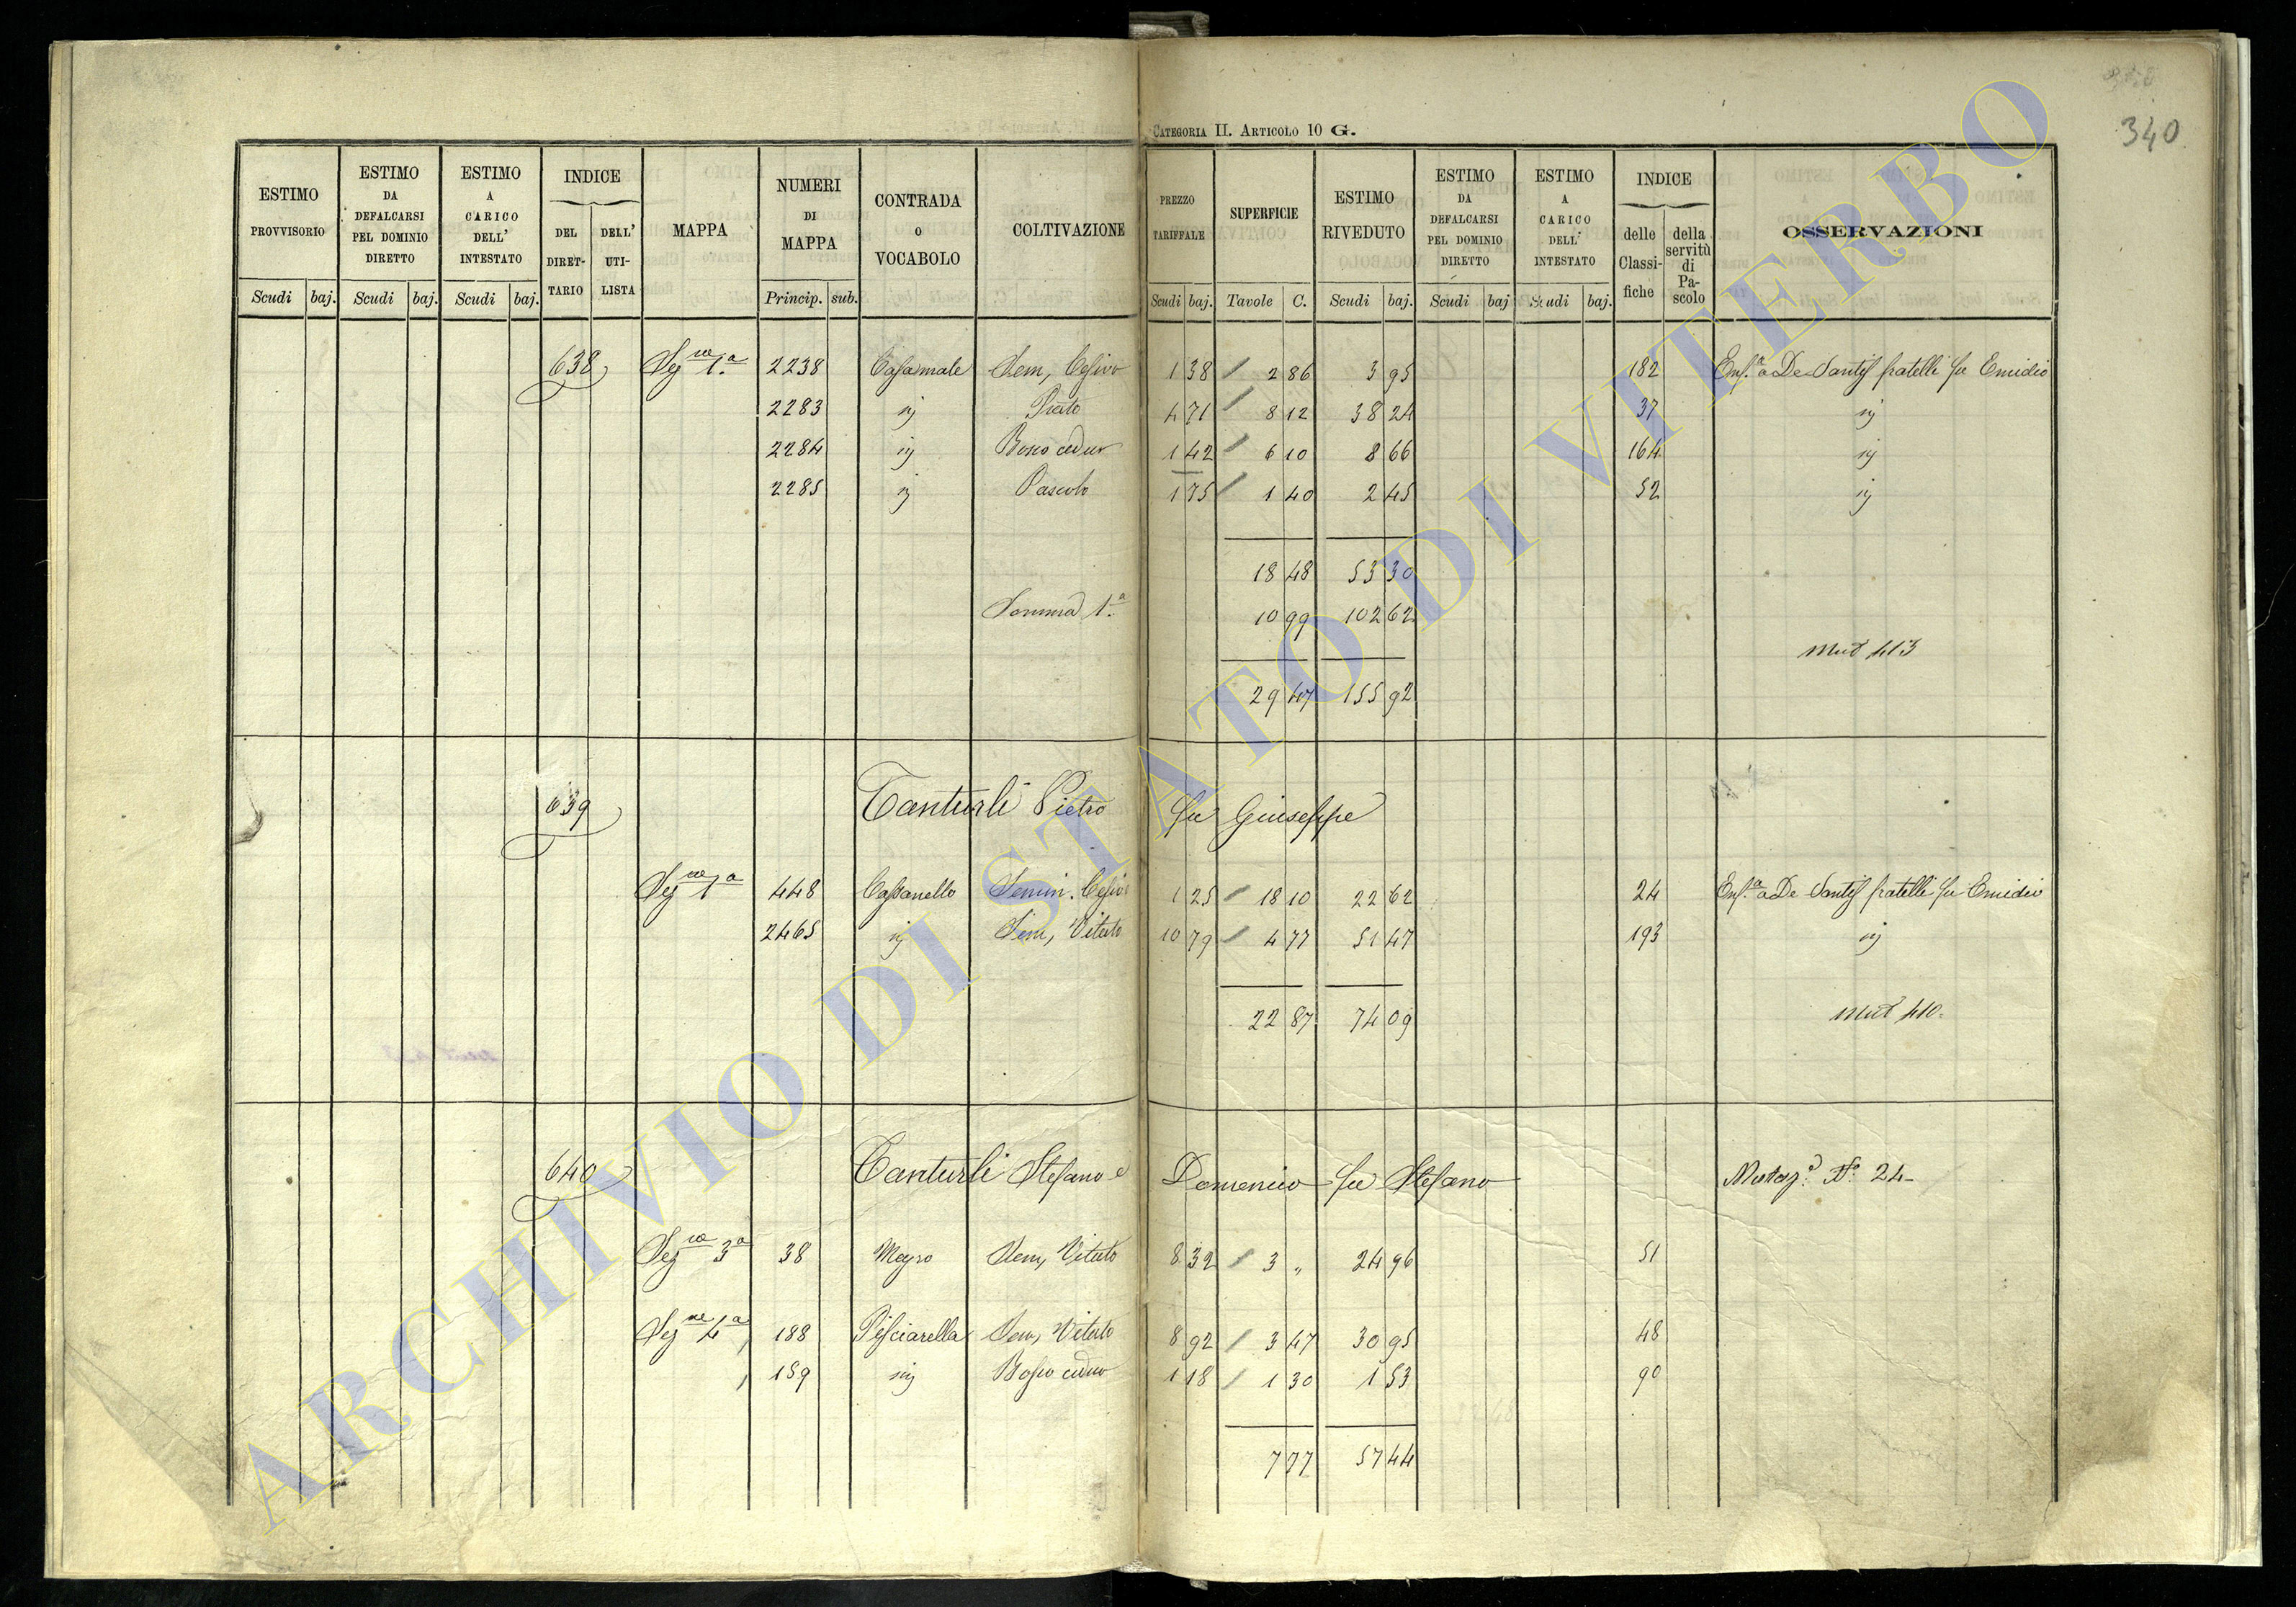 340
CATEGORIA II. ARTICOLO 10 G.
ESTIMO PROVVISORIO | ESTIMO DA DEFALCARSI PEL DOMINIO DIRETTO | ESTIMO A CARICO DELL' INTESTATO | INDICE DEL DIRET-TARIO | DELL' UTI-LISTA | MAPPA | NUMERI DI MAPPA | CONTRADA O VOCABOLO | COLTIVAZIONE | PREZZO TARIFFALE | SUPERFICIE | ESTIMO RIVEDUTO | ESTIMO DA DEFALCARSI PEL DOMINIO DIRETTO | ESTIMO A CARICO DELL' INTESTATO | INDICE delle Classi-fiche | della servitù di Pa-scolo | OSSERVAZIONI
Scudi baj. Scudi baj. Scudi baj. Princip. sub. Scudi baj. Tavole C. Scudi baj. Scudi baj Scudi baj.
638 Sez ne 1.a 2238 Casamale Sem, Cesivo 1 38 2 86 3 95 182 Enf.a a De Santis fratelli fu Emidio
2283 iij Prato 4 71 8 12 38 24 37 iij
2284 iij Bosco ceduo 1 42 6 10 8 66 164 iij
2285 iij Pascolo 1 75 1 40 2 45 52 iij
18 48 53 30
Somma 1.a 10 99 102 62
Mut 413
29 47 155 92
639 Tanturli Pietro fu Giuseppe
Sez ne 1a 448 Cassanello Semin. Cesivo 1 25 18 10 22 62 24 Enf.a a De Santis fratelli fu Emidio
2465 iij Sem, Vitato 10 79 4 77 51 47 193 iij
22 87 74 09 Mut 410.
640 Tanturli Stefano e Domenico fu Stefano Mutaz. N.o 24
Sez ne 3a 38 Sem, Vitato 8 32 3 " 24 96 51
Sez ne 4a 188 Pisciarella Sem, Vitato 8 92 3 47 30 95 48
159 iij Bosco ceduo 1 18 1 30 1 53 90
7 77 57 44
ARCHIVIO DI STATO DI VITERBO